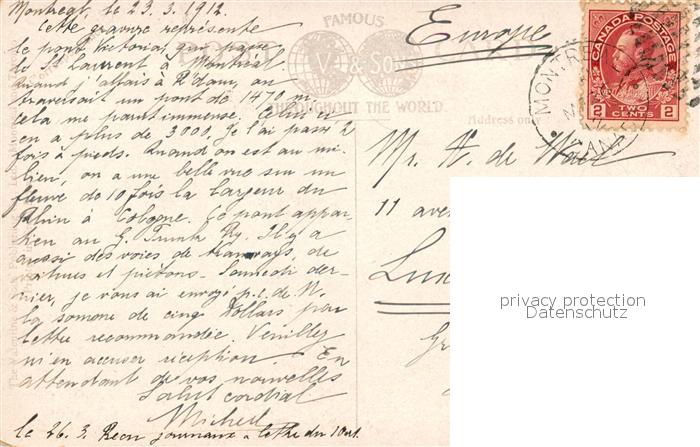 Montreal, le 23.3.1912.
Cette gravure représente
le pont Victoria, qui passe
le St Laurent à Montréal
Quand j'allais à R'dam, on
traversait un pont de 1470 m.
cela me parut immense. Celui-ci
en a plus de 3000, je l'ai passé 2
fois à pieds. Quand on est au mi-
lieu, on a une belle vue sur un
fleuve de 10 fois la largeur du
Rhin à Cologne. Ce pont appar-
tien au G. Trunk Ry. Il y a
aussi des voies de tramways, de
voitures et piétons. Samedi der-
nier, je vous ai envoyé p.c. de N.
la somme de cinq dollars par
lettre recommandée. Veuillez
m'en accuser réception. En
attendant de vos nouvelles
Salut cordial
Michel
le 26.3. Reçu journaux & lettre du 10 ct.
FAMOUS
V. & SO
CARD
THROUGHOUT THE WORLD
Address only
Europe
CANADA POSTAGE
2 TWO CENTS 2
MONTRE
CAN
Mr. A. de
11 aven
Lux
privacy protection
Datenschutz